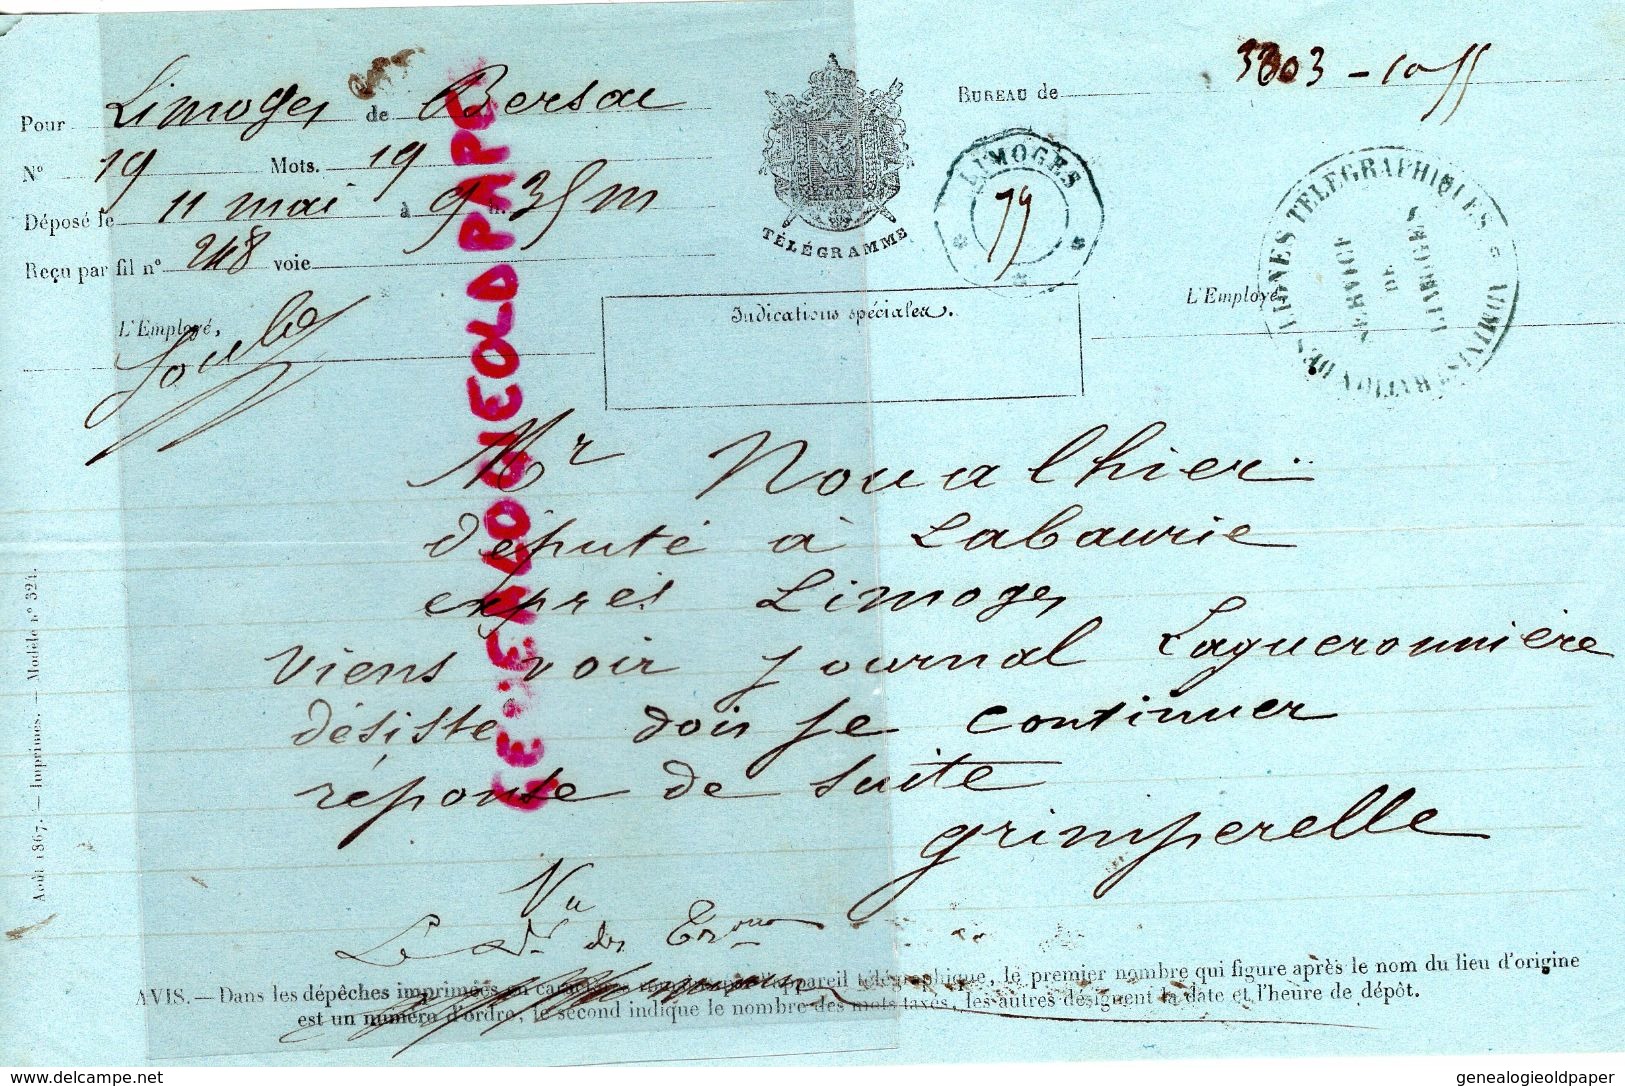 Pour Limoges de Bersac
N° 19 Mots. 19
Déposé le 11 mai à 9 h. 35 m
Reçu par fil n° 248 voie
L'Employé,
TÉLÉGRAMME
BUREAU de 3803 - 10 55
LIMOGES
75
ADMINISTRATION DES LIGNES TÉLÉGRAPHIQUES
SERVICE
DE
LIMOGES
L'Employé,
Indications spéciales.
Mr Noualhier
député à Labaurie
exprès Limoges
viens voir journal Lagueronnière
désiste dois je continuer
réponse de suite
grimperelle
Vu
Le Dr des
AVIS. — Dans les dépêches imprimées en caractères romains par l'appareil télégraphique, le premier nombre qui figure après le nom du lieu d'origine
est un numéro d'ordre, le second indique le nombre des mots taxés, les autres désignent la date et l'heure de dépôt.
Août 1867. — Imprimes. — Modèle n° 324.
GENEALOGIEOLDPAPER
www.delcampe.net
genealogieoldpaper